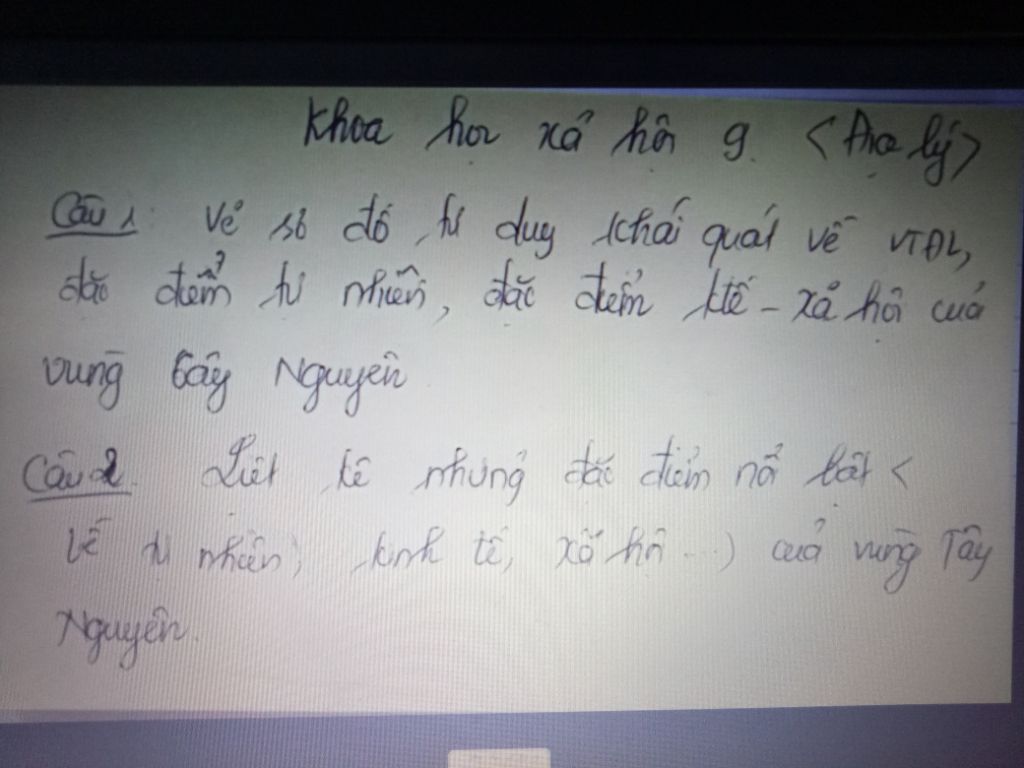 Khoa học xã hội 9. <Địa lý>
Câu 1: Vẽ sơ đồ tư duy khái quát về VTĐL,
đặc điểm tự nhiên, đặc điểm ktế - xã hội của
vùng Tây Nguyên
Câu 2. Liệt kê những đặc điểm nổi bật <
về tự nhiên, kinh tế, xã hội...) của vùng Tây
Nguyên.